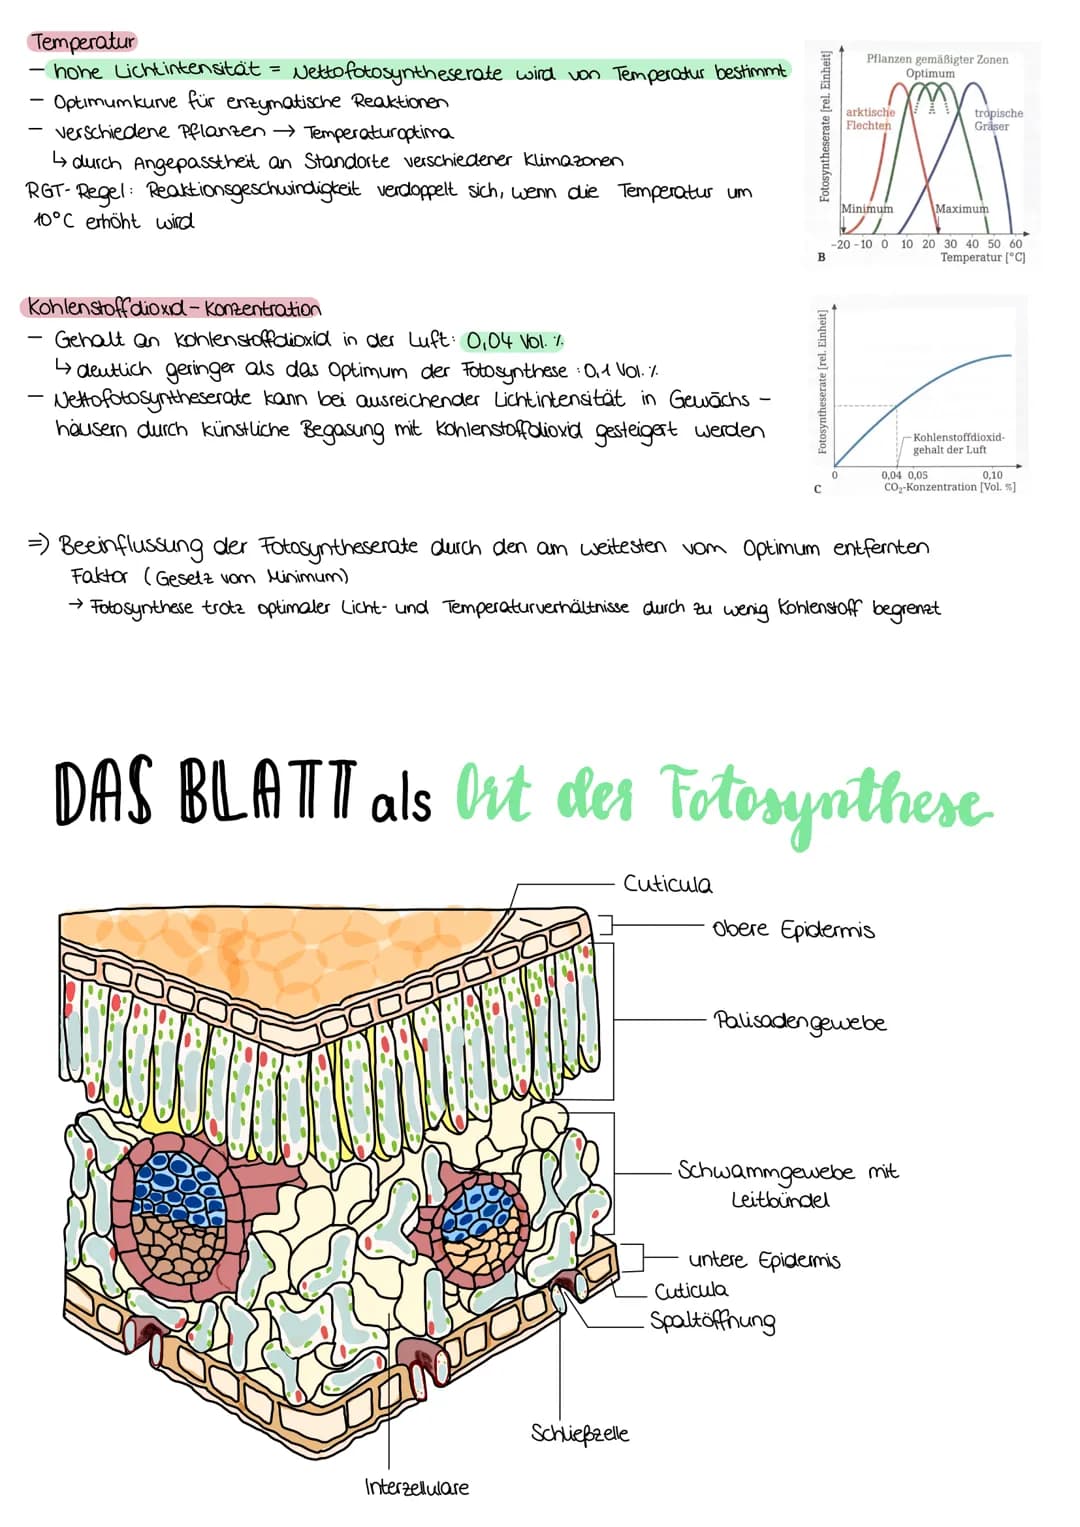 Temperatur
– hohe Lichtintensität = Nettofotosyntheserate wird von Temperatur bestimmt
– Optimumkurve für enzymatische Reaktionen
– verschiedene Pflanzen → Temperaturoptima
↳ durch Angepasstheit an Standorte verschiedener Klimazonen
RGT-Regel: Reaktionsgeschwindigkeit verdoppelt sich, wenn die Temperatur um
10°C erhöht wird
Fotosyntheserate [rel. Einheit]
Pflanzen gemäßigter Zonen
Optimum
arktische
Flechten
tropische
Gräser
Minimum
Maximum
-20 -10 0 10 20 30 40 50 60
B
Temperatur [°C]
Kohlenstoffdioxid-Konzentration
– Gehalt an Kohlenstoffdioxid in der Luft: 0,04 Vol. %
↳ deutlich geringer als das Optimum der Fotosynthese : 0,1 Vol. %
– Nettofotosyntheserate kann bei ausreichender Lichtintensität in Gewächs-
häusern durch künstliche Begasung mit Kohlenstoffdioxid gesteigert werden
Fotosyntheserate [rel. Einheit]
Kohlenstoffdioxid-
gehalt der Luft
0 0,04 0,05 0,10
C
CO₂-Konzentration [Vol. %]
⇒ Beeinflussung der Fotosyntheserate durch den am weitesten vom Optimum entfernten
Faktor (Gesetz vom Minimum)
→ Fotosynthese trotz optimaler Licht- und Temperaturverhältnisse durch zu wenig Kohlenstoff begrenzt
DAS BLATT als Ort der Fotosynthese
Cuticula
Obere Epidermis
Palisadengewebe
Schwammgewebe mit
Leitbündel
untere Epidermis
Cuticula
Spaltöffnung
Schließzelle
Interzellulare